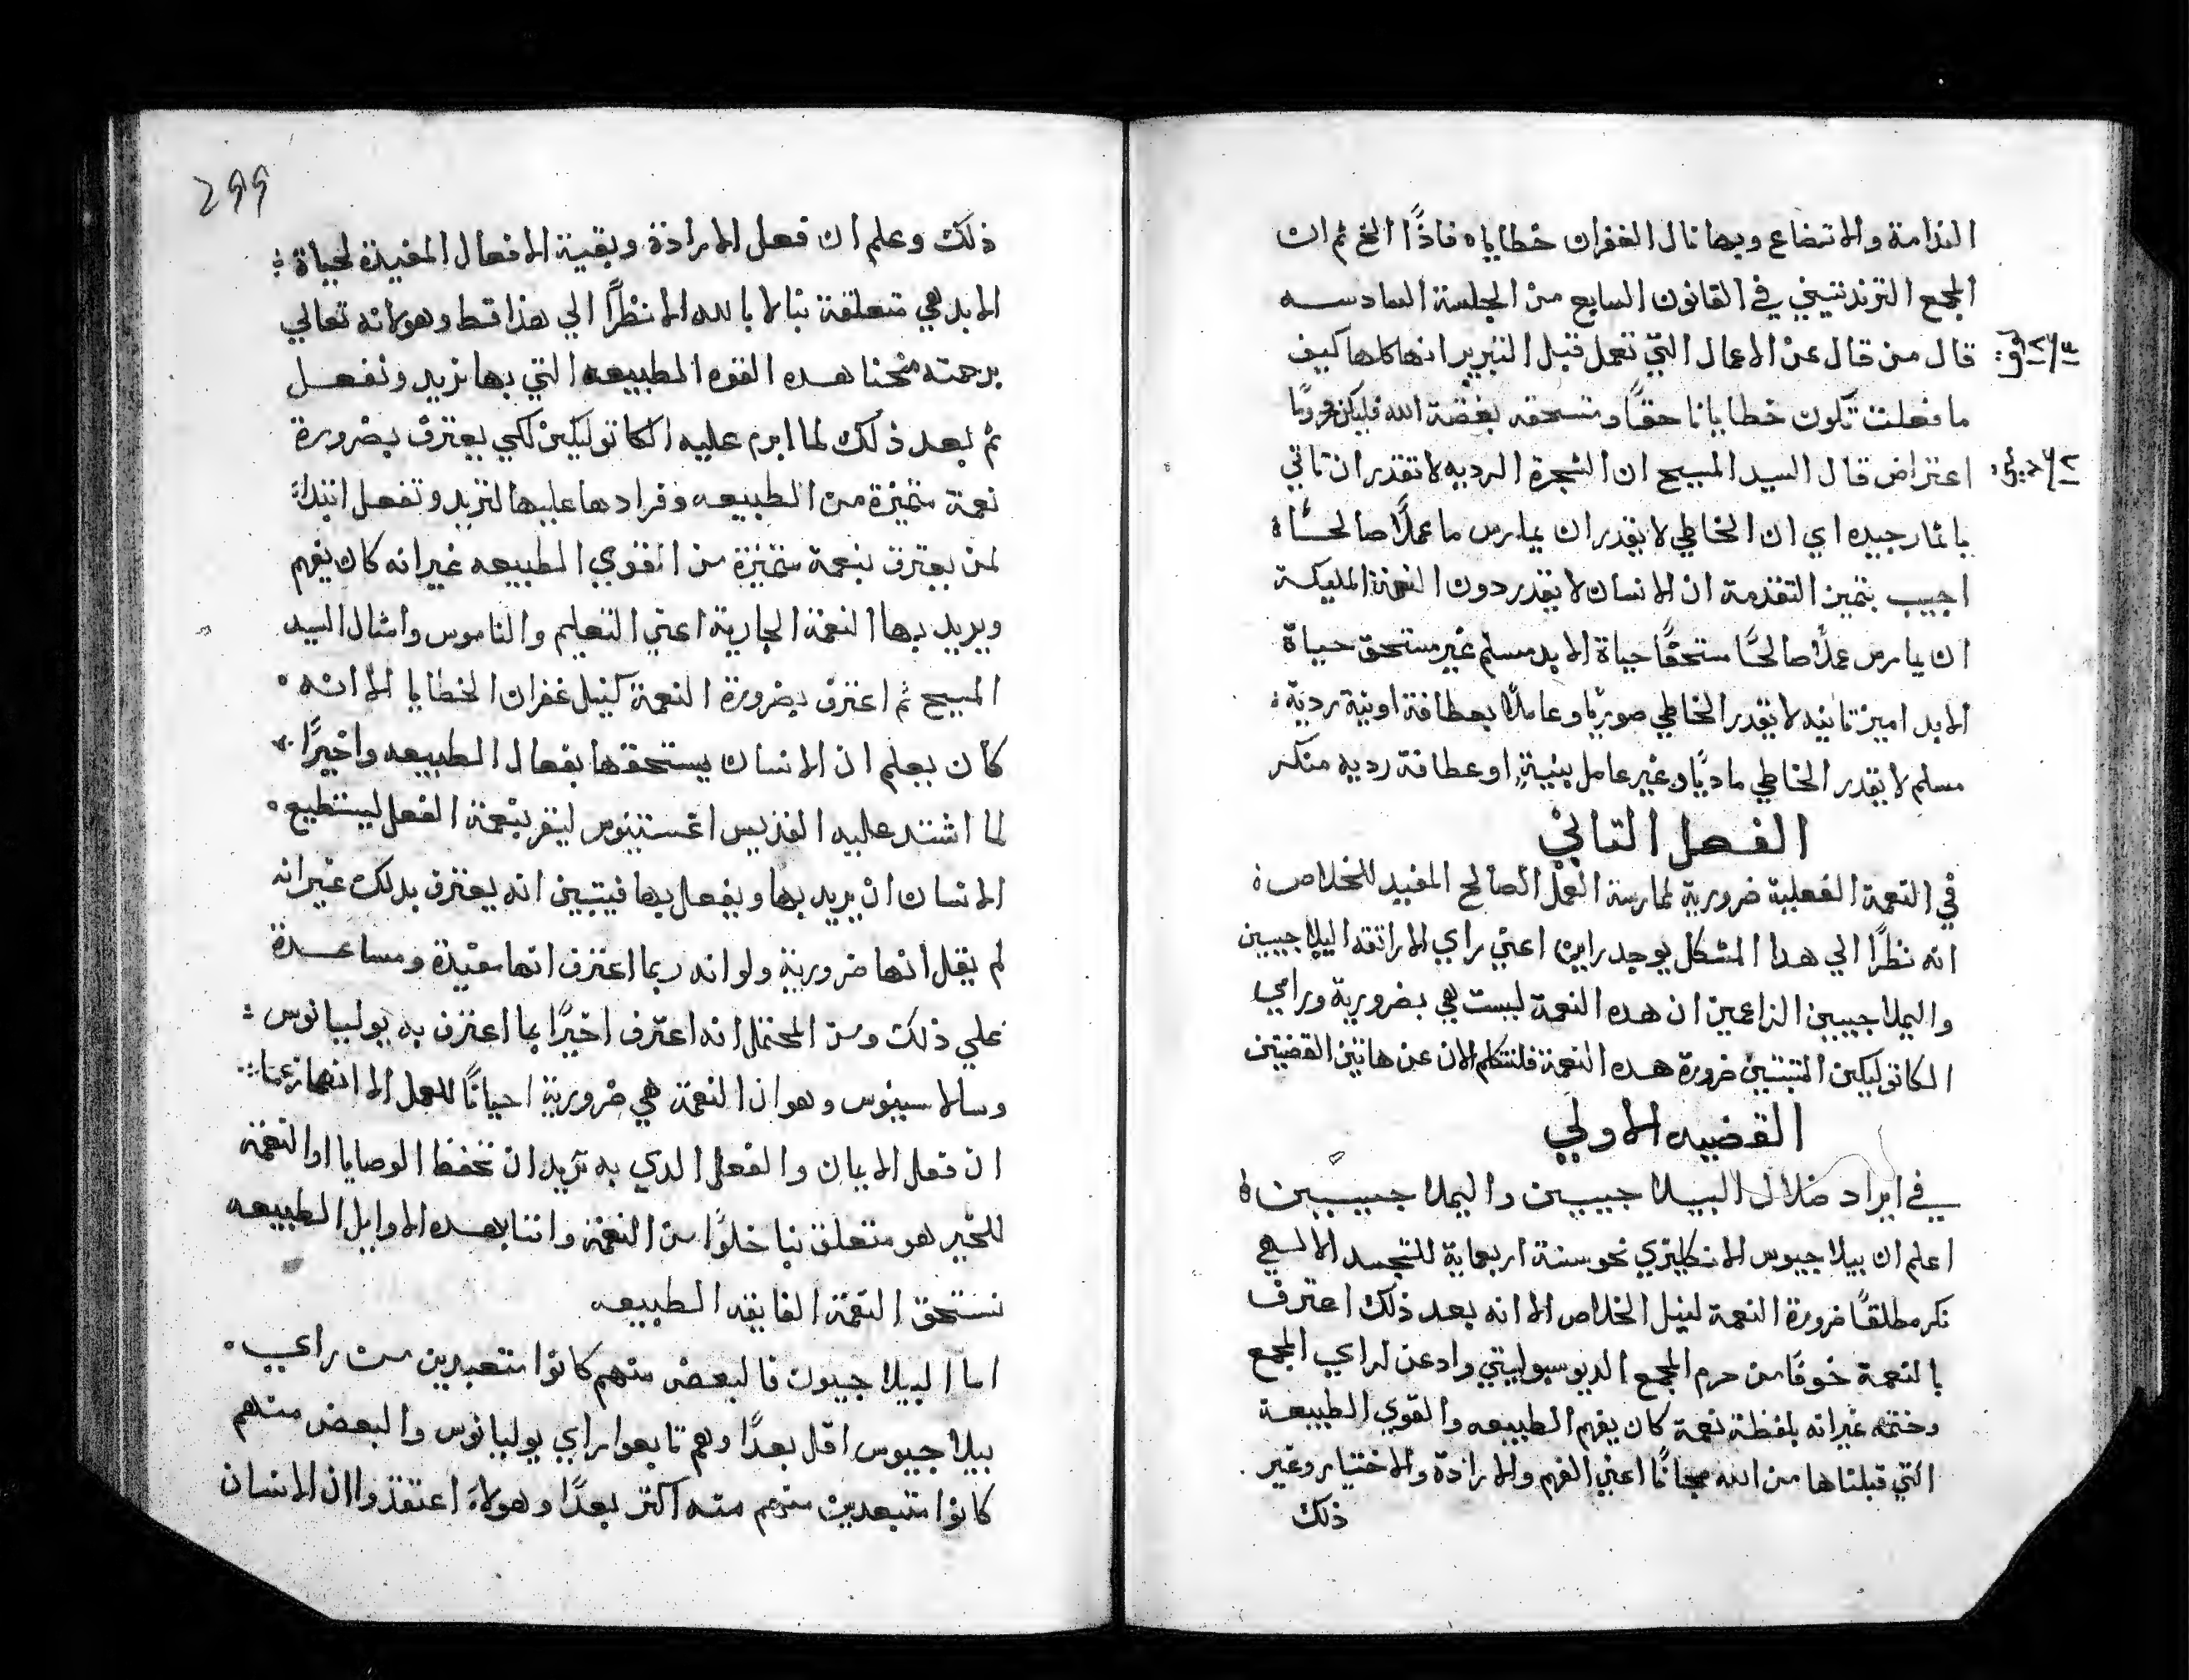 الندامة والاتضاع وبها نال الغفران خطاياه فاذًا الخ ثم ان
المجمع التريدنتيني في القانون السابع من الجلسة السادسه
قال من قال عن الاعمال التي تعمل قبل التبرير انها كلها كيف
ما فعلت تكون خطايانا حقًا وتستحق بغضة الله فليكن محرومًا
اعتراض قال السيد المسيح ان الشجرة الرديه لا تقدر ان تاتي
باثمار جيده اي ان الخاطي لا يقدر ان يمارس ما عملًا صالحًا
اجيب بتميز التقدمة ان الانسان لا يقدر دون النعمة المليكة
ان يمارس عملًا صالحًا مستحقًا حياة الابد مسلم غير مستحق حياة
الابد اميز تانيه لا يقدر الخاطي صوريًا وعاملًا بعطافة او نية ردية
مسلم لا يقدر الخاطي ماديًا وغير عامل بنيةٍ او عطافة رديه منكر
الفصل التاني
في النعمة الفعلية ضرورية لممارسة العمل الصالح المفيد للخلاص
انه نظرًا الي هدا المشكل يوجد رايين اعني راي الاراتقه البيلاجيين
واليملاجيبين الزاعمين ان هده النعمة ليست هي بضرورية وراي
الكاتوليكين المتبتين ضرورة هده النعمة فلنتكلم الان عن هاتين القضيتين
القضيه الاولي
في ايراد ضلال البيلاجيبين واليملاجيبيين
اعلم ان بيلاجيوس الانكليزي نحو سنة اربعماية للتجسد الالهي
نكر مطلقًا ضرورة النعمة لنيل الخلاص الا انه بعد ذلك اعترف
بالنعمة خوفًا من حرم المجمع الديوسبوليتي وادعن لراي المجمع
وختمه غير انه بلفظة نعمة كان يفهم الطبيعه والقوي الطبيعة
التي قبلناها من الله مجانًا اعني الفهم والارادة والاختيار وغير
ذلك
299
ذلك وعلم ان فعل الارادة وبقية الافعال المفيدة لحياة
الابد هي متعلقة بنا لا بالله الا نظرًا الي هذا قط وهو لانه تعالي
برحمته منحنا هده القوه الطبيعه التي بها نريد ونفعل
ثم بعد ذلك لما ابرم عليه الكاتوليكين لكي يعترف بضرورة
نعمة متميزة من الطبيعه وفرادها عليها لنريد وتفعل ابتداءً
لمن يعترف بنعمة متميزة من القوي الطبيعه غير انه كان يفهم
ويريد بها النعمة الجارية اعني التعليم والناموس وامثال السيد
المسيح ثم اعترف بضرورة النعمة كنيل غفران الخطايا الا انه
كان يعلم ان الانسان يستحقها بفعال الطبيعه واخيرًا
لما اشتد عليه القديس اغستينوس ليقر بنعمة الفعل ليستطيع
الانسان ان يريد بها ويفعل بها فيتبين انه يعترف بدلك غير انه
لم يقل انها ضرورية ولو انه ربما اعترف انها مفيدة ومساعدة
علي ذلك ومن المحتمل انه اعترف اخيرًا بما اعترف به يوليانوس
وسالاسيوس وهو ان النعمة هي ضرورية احيانًا للعمل الا انهما زعما
ان فعل الايمان والفعل الدي به نريد ان نحفظ الوصايا او النعمة
للخير هو متعلق بنا خلوًا من النعمة واننا بهده الاوايل الطبيعه
نستحق النعمة الفايقه الطبيعه
اما البيلاجيون فالبعض منهم كانوا متعبدين من راي
بيلاجيوس اقل بعدًا وهم تابعوا راي يوليانوس والبعض منهم
كانوا متبعدين منهم منه اكتر بعدًا وهولاء اعتقدوا ان الانسان